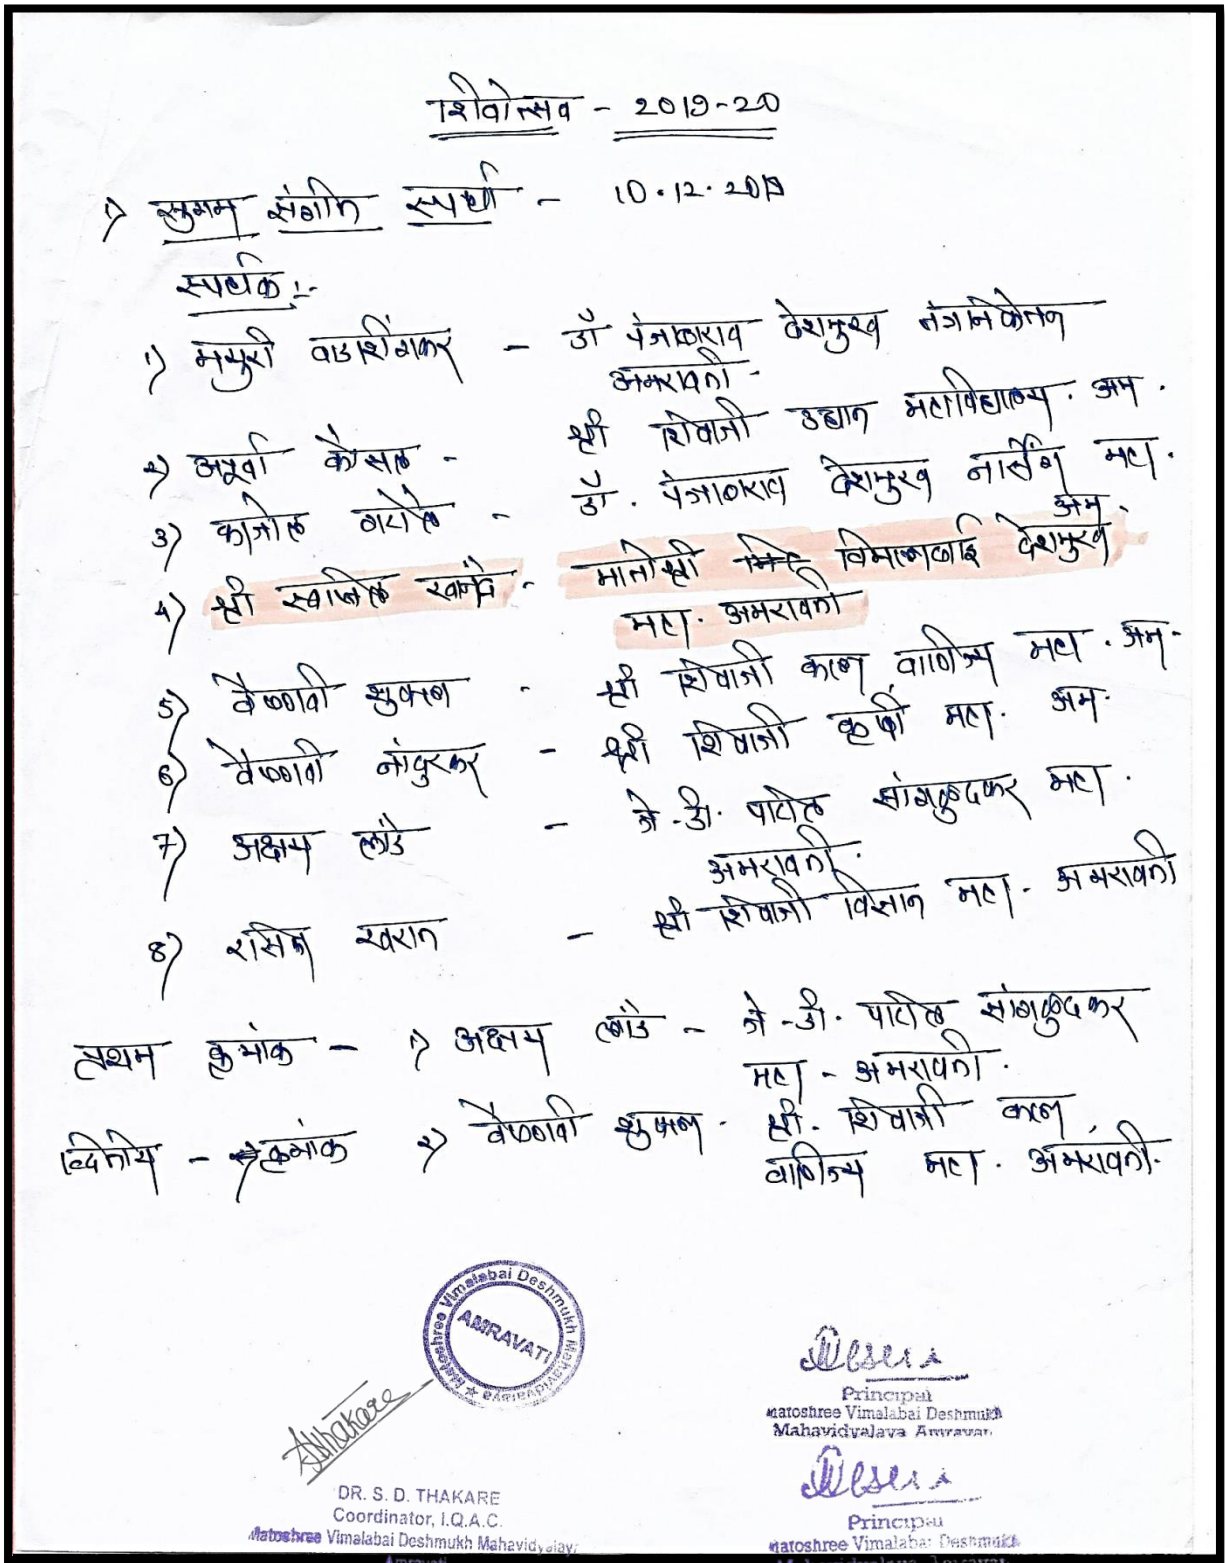 शिवोत्सव - 2019-20
१) सुगम संगीत स्पर्धा - 10.12.2019
स्पर्धक :-
१) मयुरी वाडशिंगकर - डॉ पंजाबराव देशमुख तंत्रनिकेतन
अमरावती -
२) अपूर्वा कौसल - श्री शिवाजी उद्यान महाविद्यालय. अम.
3) काजोल वरोले - डॉ. पंजाबराव देशमुख नर्सिंग महा.
अम.
4) श्री स्वप्निल खानंदे - मातोश्री विमलाबाई देशमुख
महा. अमरावती
5) वैष्णवी शुक्ला - श्री शिवाजी कला वाणिज्य महा. अम-
6) वैष्णवी नांदुरकर - श्री शिवाजी कृषी महा. अम.
7) अक्षय लांडे - जे.डी. पाटील सांगळुदकर महा.
अमरावती.
8) रसिका खरात - श्री शिवाजी विज्ञान महा - अमरावती
प्रथम क्रमांक - १) अक्षय लांडे - जे.डी. पाटील सांगळुदकर
महा - अमरावती.
द्वितीय - क्रमांक २) वैष्णवी शुक्ला - श्री. शिवाजी कला
वाणिज्य महा. अमरावती.
Matoshree Vimalabai Deshmukh Mahavidyalaya
AMRAVATI
SDThakare
Principal
Matoshree Vimalabai Deshmukh
Mahavidyalaya Amravati.
DR. S. D. THAKARE
Coordinator, I.Q.A.C.
Matoshree Vimalabai Deshmukh Mahavidyalaya
Amravati
Principal
Matoshree Vimalabai Deshmukh
Mahavidyalaya Amravati